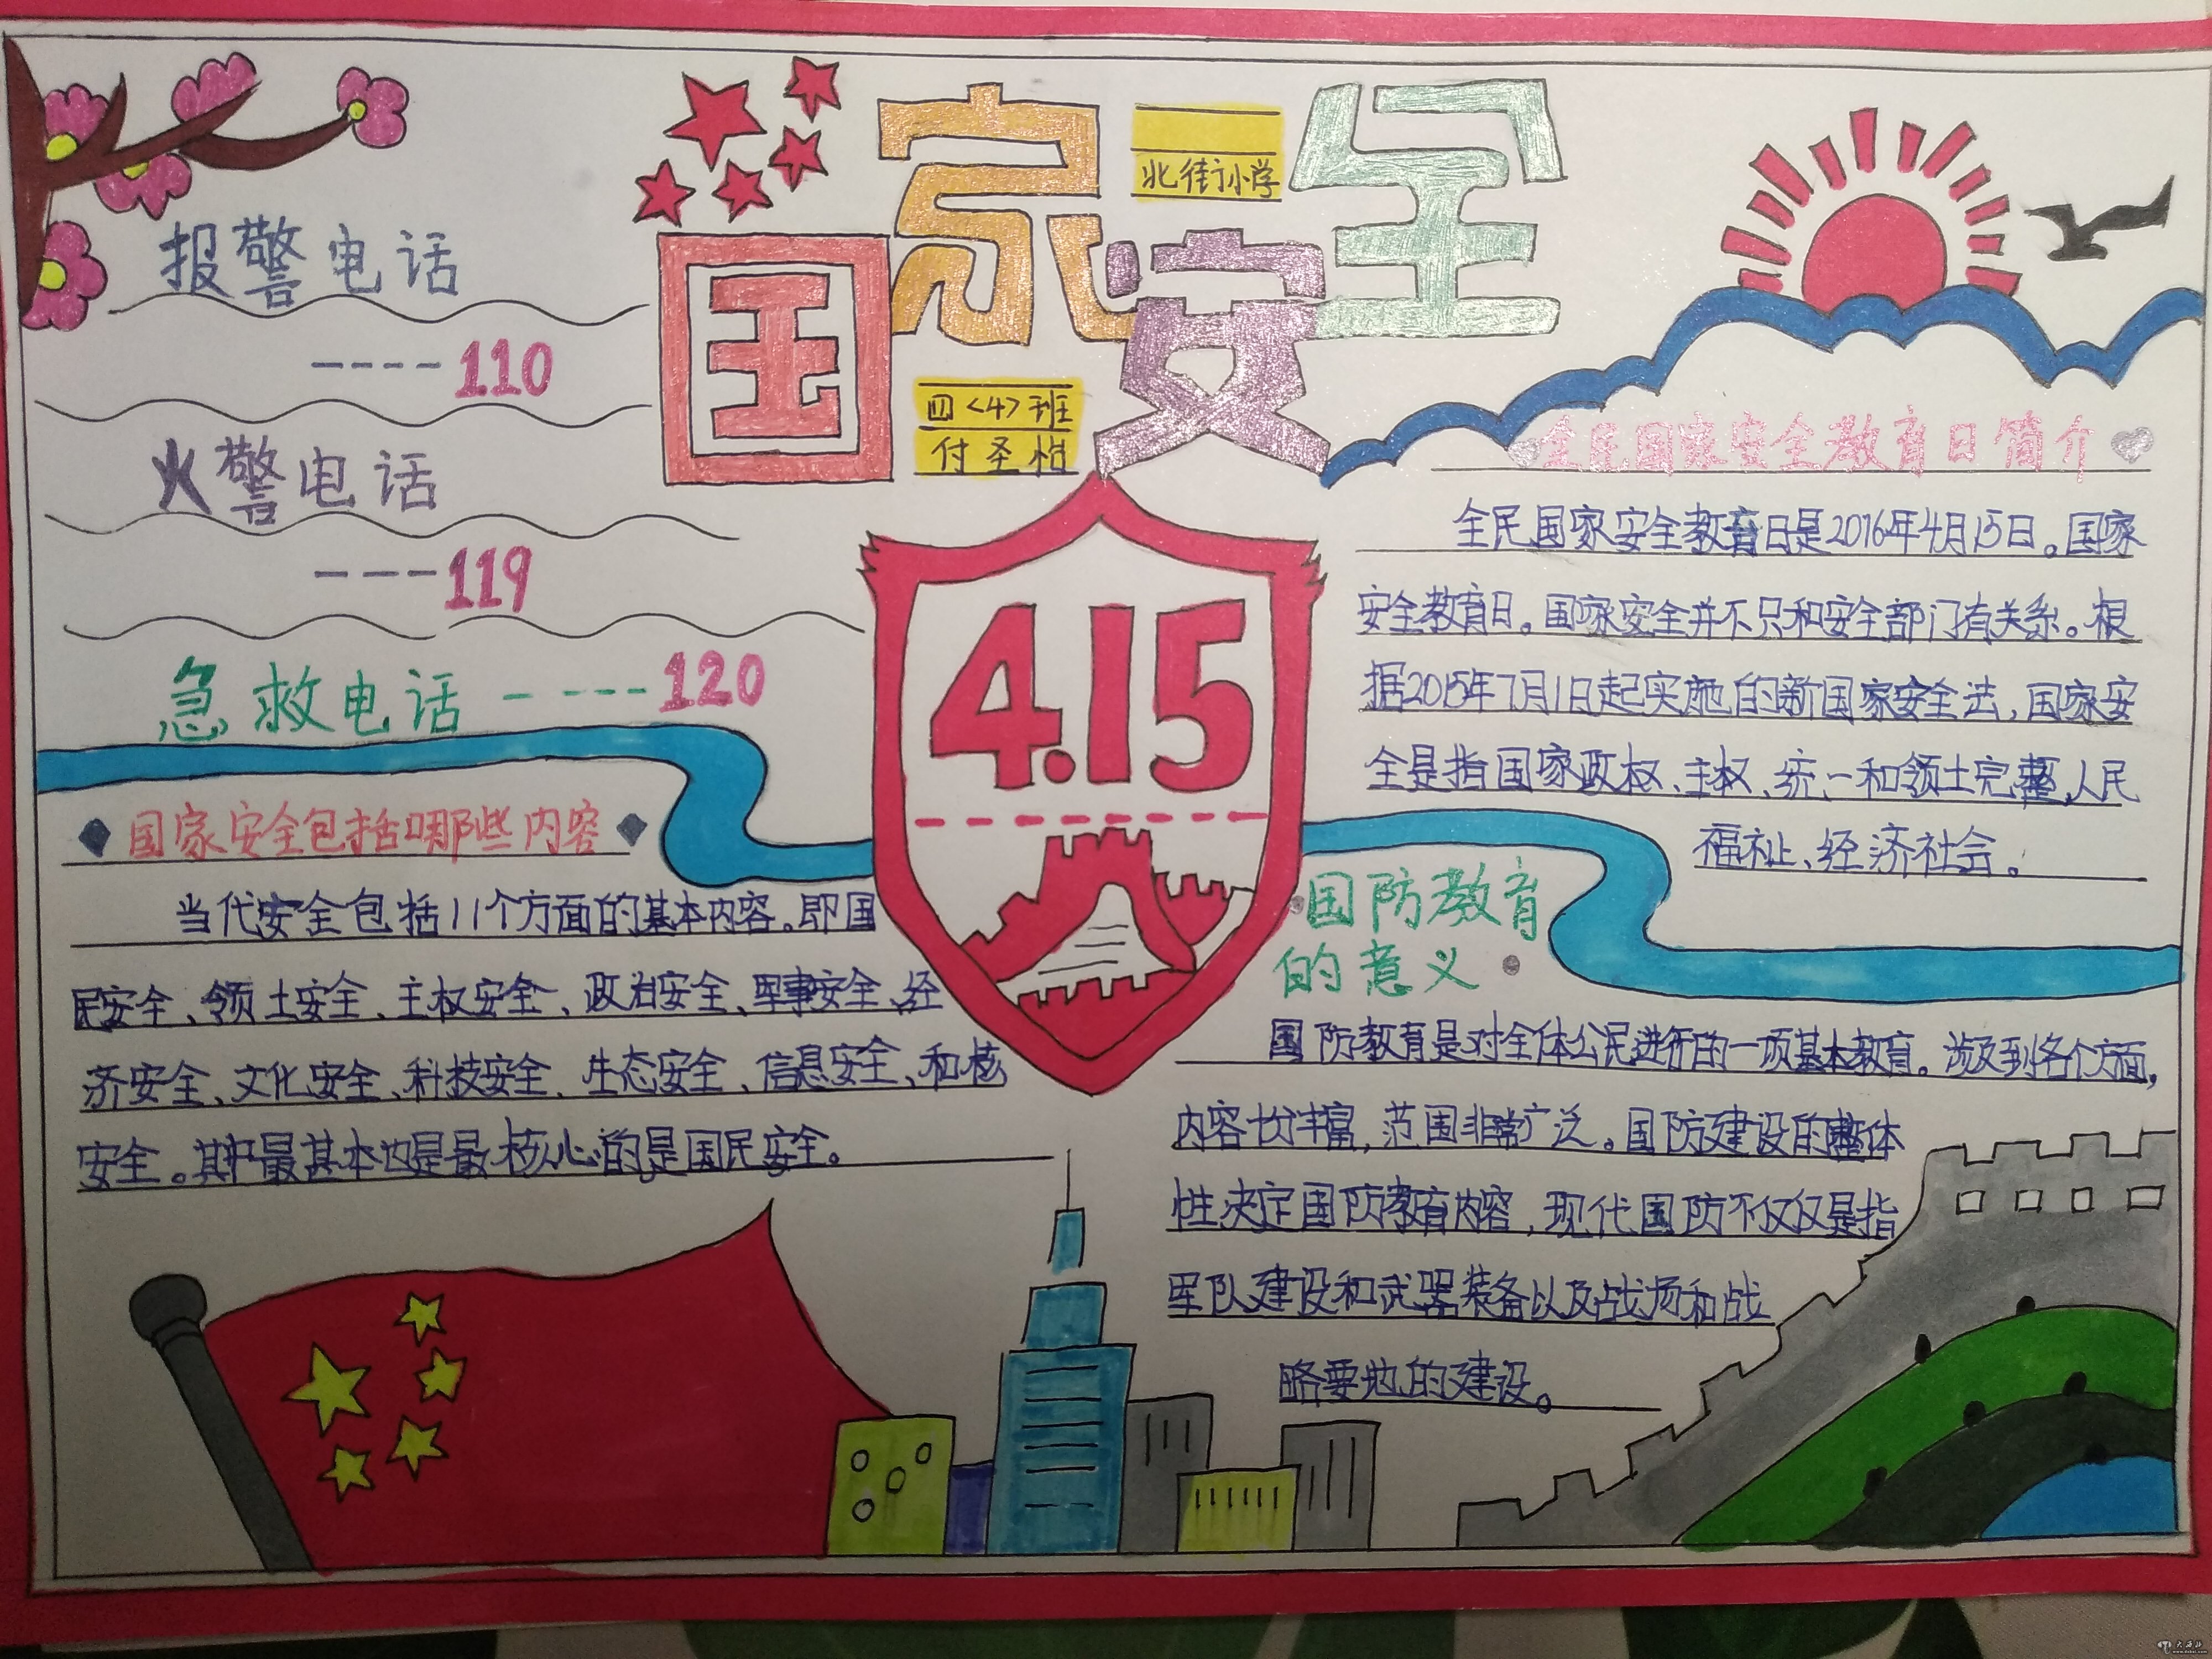 国家安全
北街小学
四<4>班
报警电话
----110
火警电话
---119
急救电话 ----120
4.15
国家安全包括哪些内容
当代安全包括11个方面的基本内容。即国
民安全、领土安全、主权安全、政治安全、军事安全、经
济安全、文化安全、科技安全、生态安全、信息安全、和核
安全。其中最基本也是最核心的是国民安全。
全民国家安全教育日简介
全民国家安全教育日是2016年4月15日。国家
安全教育日。国家安全并不只和安全部门有关系。根
据2015年7月1日起实施的新国家安全法,国家安
全是指国家政权、主权、统一和领土完整、人民
福祉、经济社会。
国防教育
的意义
国防教育是对全体公民进行的一项基本教育。涉及到各个方面,
内容十分丰富,范围非常广泛。国防建设的整体
性决定国防教育内容,现代国防不仅仅是指
军队建设和武器装备以及战场和战
略要地的建设。